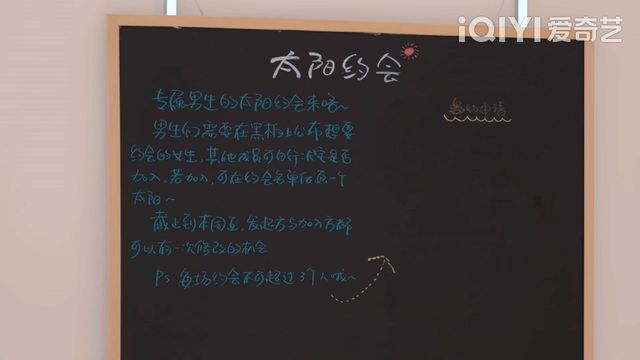 iQIYI 爱奇艺
太阳约会
专属男生的太阳约会来咯~
男生们需要在黑板上公布想要
约会的女生，其他成员可自行决定是否
加入。若加入，可在约会名单后画一个
太阳~
截止到本周五，发起方与加入方都
可以有一次修改的机会
Ps: 每场约会不可超过3个人哦~